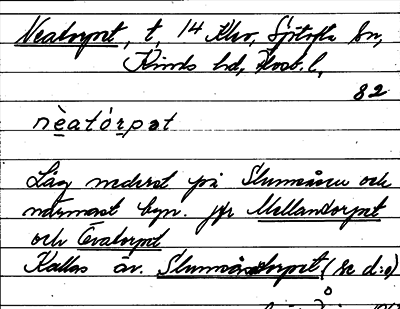 Neatorpet, t, 14 Klev, Sjötofta sn,
Kinds hd, Älvsb. l,
82
nèatórpət
Låg nederst på Slumnåsen och
närmast byn. jfr Mellantorpet
och Övatorpet
Kallas äv. (se d:o)